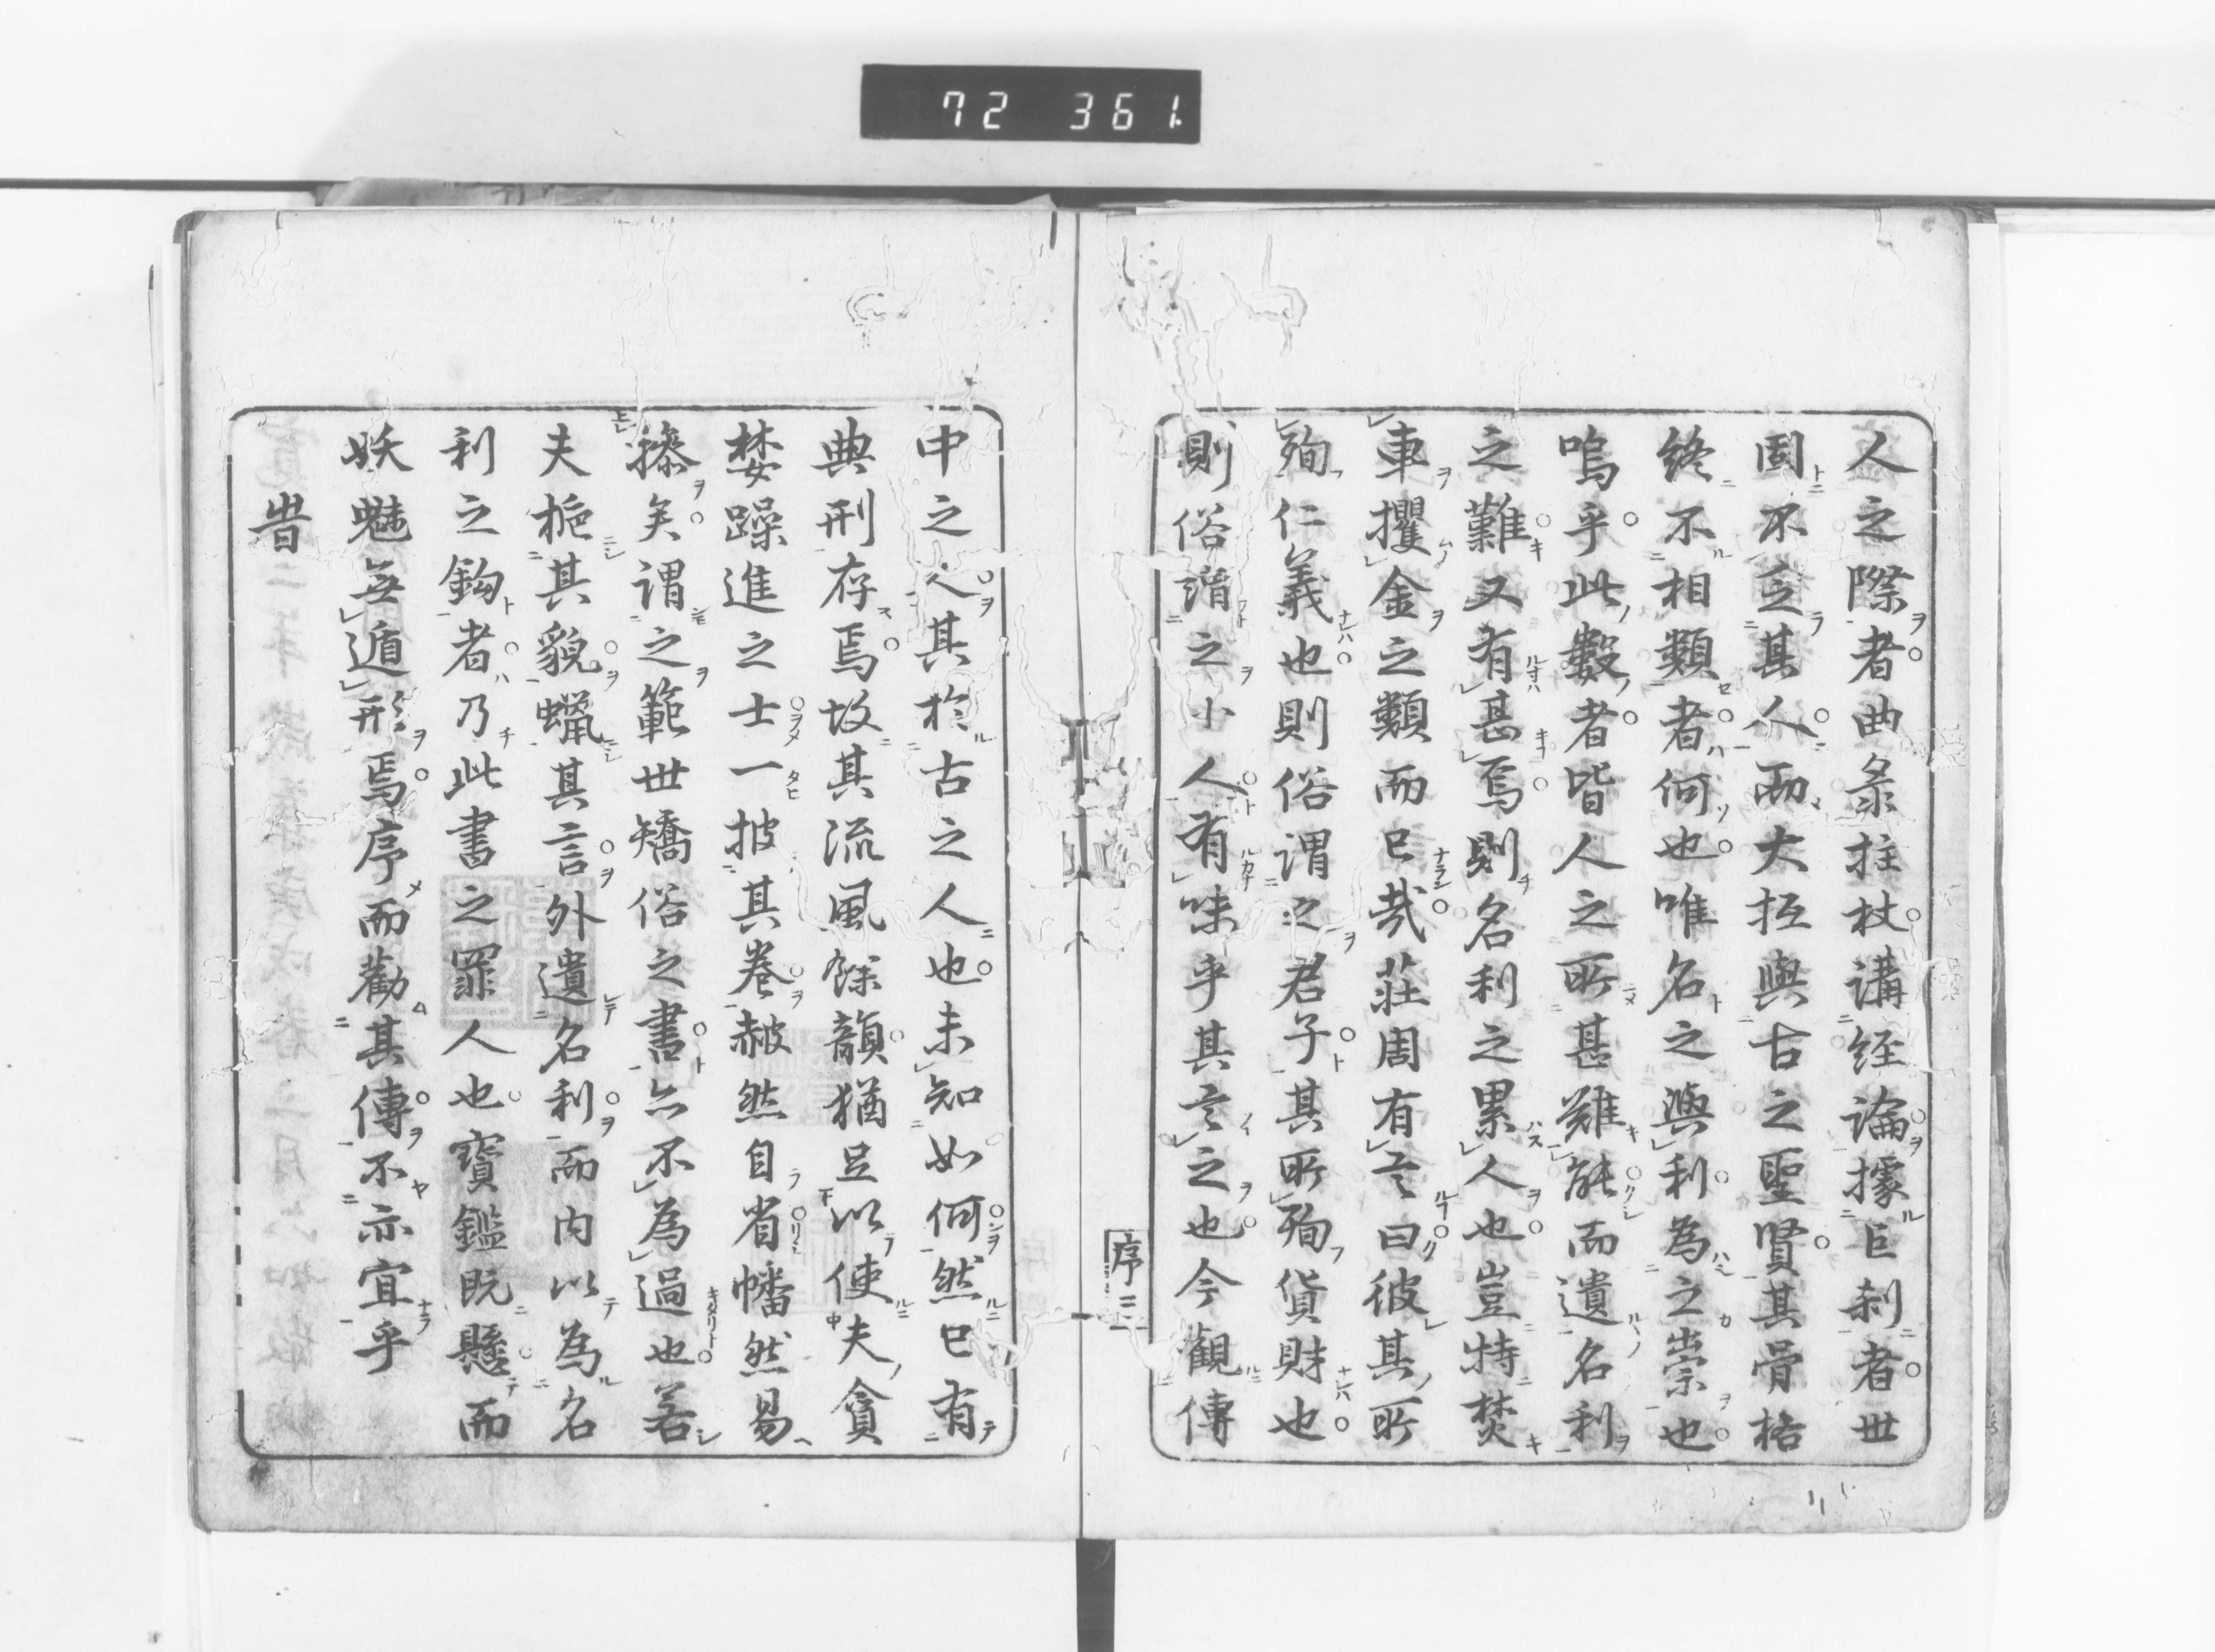 72 361
人之際者曲彔拄杖講經論據巨刹者世
固不乏其人而大抵與古之聖賢其骨格
終不相類者何也唯名之與利為之祟也
嗚乎此數者皆人之所甚難能而遺名利
之難又有甚焉則名利之累人也豈特焚
車攫金之類而已哉莊周有言曰彼其所
殉仁義也則俗謂之君子其所殉貨財也
則俗謂之小人有味乎其言之也今觀傳
序三
中之人其於古之人也未知如何然已有
典刑存焉故其流風餘韻猶足以使夫貪
婪躁進之士一披其卷赧然自省幡然易
操矣謂之範世矯俗之書亦不為過也若
夫梔其貌蠟其言外遺名利而內以為名
利之鈎者乃此書之罪人也寶鑑既懸而
妖魅無遁形焉序而勸其傳不亦宜乎
旹